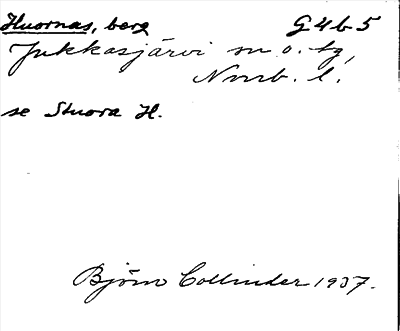 Huornas, berg G4b5
Jukkasjärvi sn o. tg,
Norrb. l.
se Stuora H.
Björn Collinder 1937.